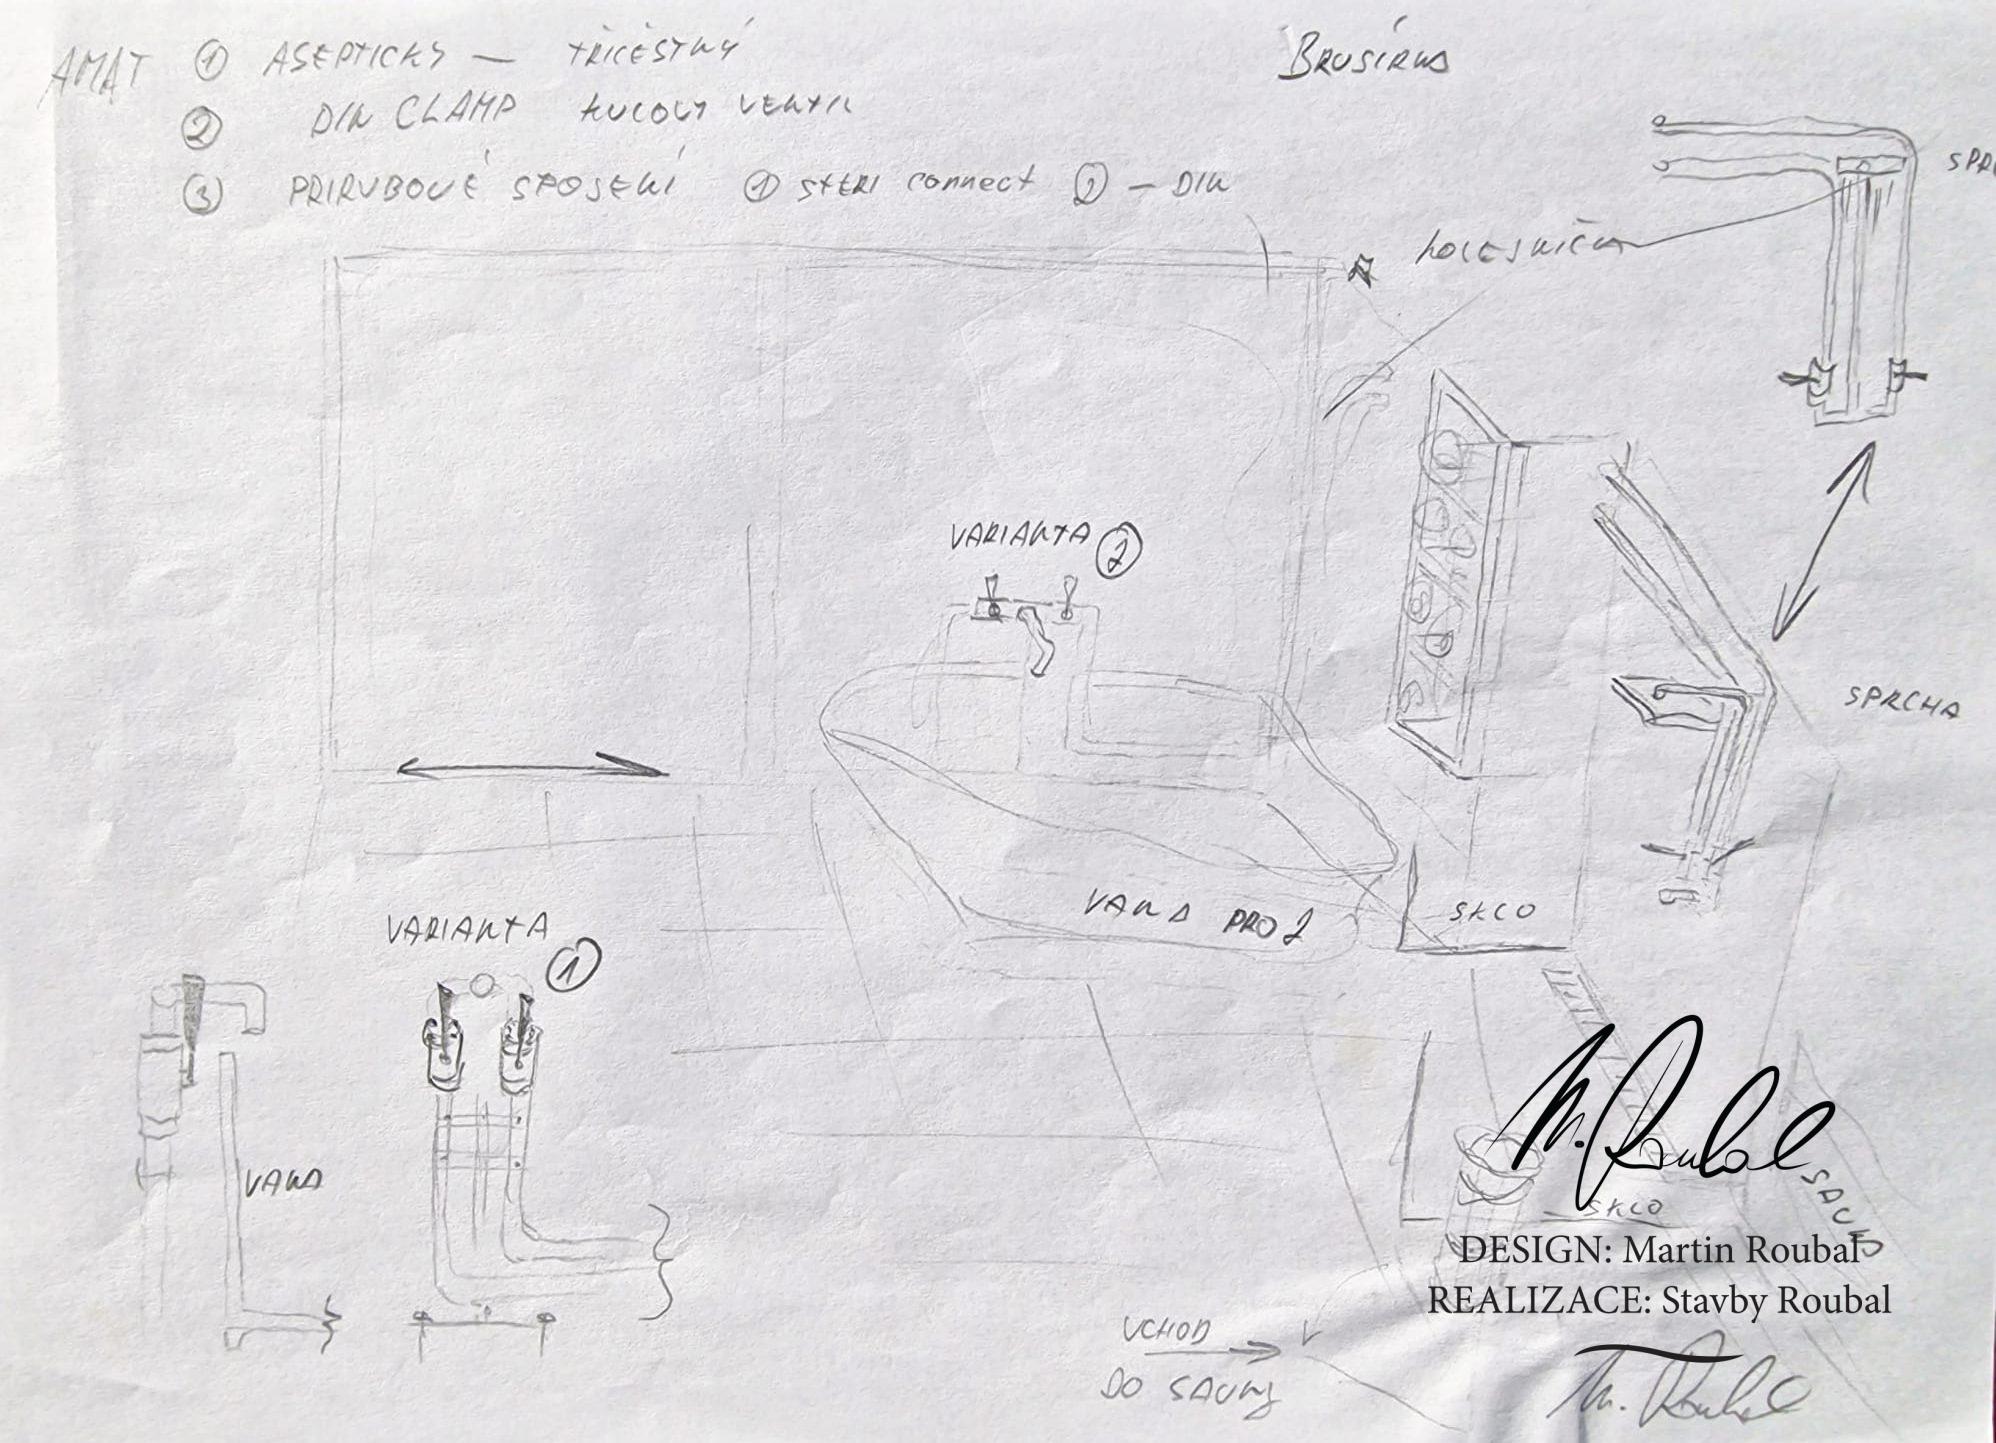 AMAT ① ASEPTICKY — TŘICESTNÝ
② DIN CLAMP KULOVY VENTIL
③ PŘIRUBOVÉ SPOJENÍ ① STERI connect ② - DIN
BRUSÍRNA
SPR
KOLEJNIČKA
VARIANTA ②
SPRCHA
VANA PRO 2
SKLO
VARIANTA ①
VANA
SKLO
SAUNA
M. Roubal
DESIGN: Martin Roubal
REALIZACE: Stavby Roubal
VCHOD
DO SAUNY
M. Roubal